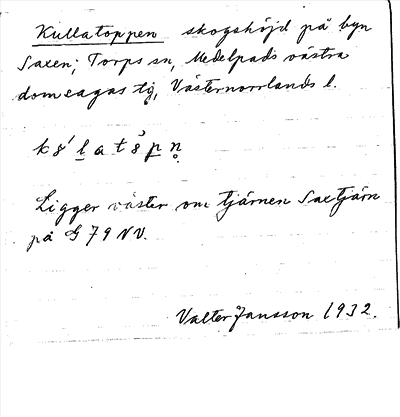 Kullatoppen skogshöjd på byn
Saxen; Torps sn, Medelpads västra
domsagas tg, Västernorrlands l.
Ligger väster om tjärnen Saxtjärn
på G 79 NV.
Valter Jansson 1932.